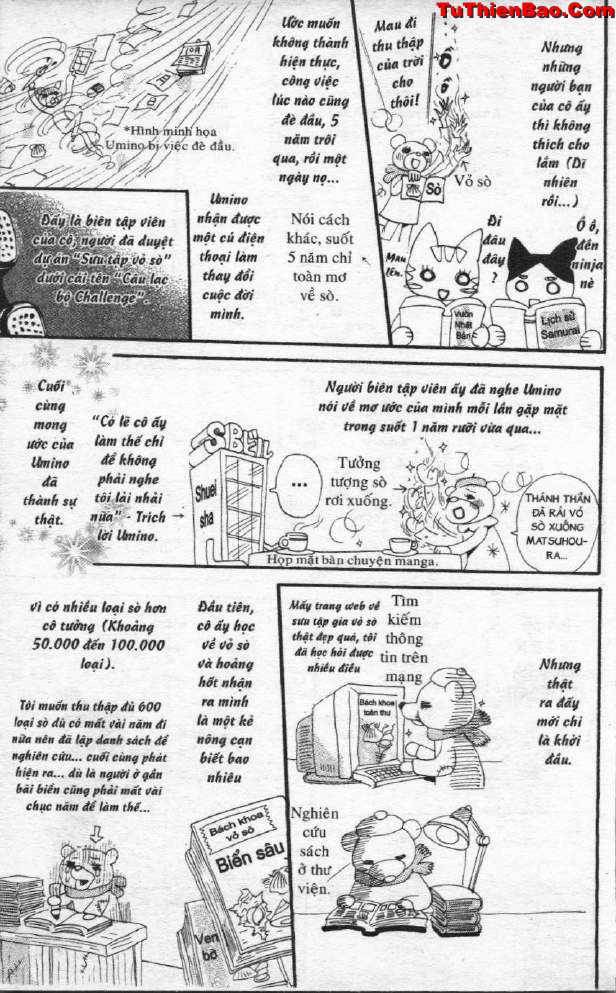 TuThienBao.Com
Nhưng
những
người bạn
của cô ấy
thì không
thích cho
lắm (Dĩ
nhiên
rồi...)
Mau đi
thu thập
của trời
cho
thôi!
Sò
Vỏ sò
Ồ ồ,
đền
ninja
nè
Đi
đâu
đây
?
Mau
lên.
Vườn
Nhật
Bản
Lịch sử
Samurai
Ước muốn
không thành
hiện thực,
công việc
lúc nào cũng
đè đầu, 5
năm trôi
qua, rồi một
ngày nọ...
*Hình minh họa
Umino bị việc đè đầu.
Nói cách
khác, suốt
5 năm chỉ
toàn mơ
về sò.
Umino
nhận được
một cú điện
thoại làm
thay đổi
cuộc đời
mình.
Đây là biên tập viên
của cô, người đã duyệt
dự án "Sưu tập vỏ sò"
dưới cái tên "Câu lạc
bộ Challenge".
Người biên tập viên ấy đã nghe Umino
nói về mơ ước của mình mỗi lần gặp mặt
trong suốt 1 năm rưỡi vừa qua...
THÁNH THẦN
ĐÃ RẢI VỎ
SÒ XUỐNG
MATSUHOU-
RA...
Tưởng
tượng sò
rơi xuống.
...
Shuei
sha
Họp mặt bàn chuyện manga.
"Có lẽ cô ấy
làm thế chỉ
để không
phải nghe
tôi lải nhải
nữa" - Trích
lời Umino.
Cuối
cùng
mong
ước của
Umino
đã
thành sự
thật.
Nhưng
thật
ra đấy
mới chỉ
là khởi
đầu.
Tìm
kiếm
thông
tin trên
mạng
Mấy trang web về
sưu tập gia vỏ sò
thật đẹp quá, tôi
đã học hỏi được
nhiều điều
Bách khoa
toàn thư
Nghiên
cứu
sách
ở thư
viện.
Đầu tiên,
cô ấy học
về vỏ sò
và hoảng
hốt nhận
ra mình
là một kẻ
nông cạn
biết bao
nhiêu
Vì có nhiều loại sò hơn
cô tưởng (Khoảng
50.000 đến 100.000
loại).
Tôi muốn thu thập đủ 600
loại sò dù có mất vài năm đi
nữa nên đã lập danh sách để
nghiên cứu... cuối cùng phát
hiện ra... dù là người ở gần
bãi biển cũng phải mất vài
chục năm để làm thế...
Bách khoa
vỏ sò
Biển sâu
Ven
bờ